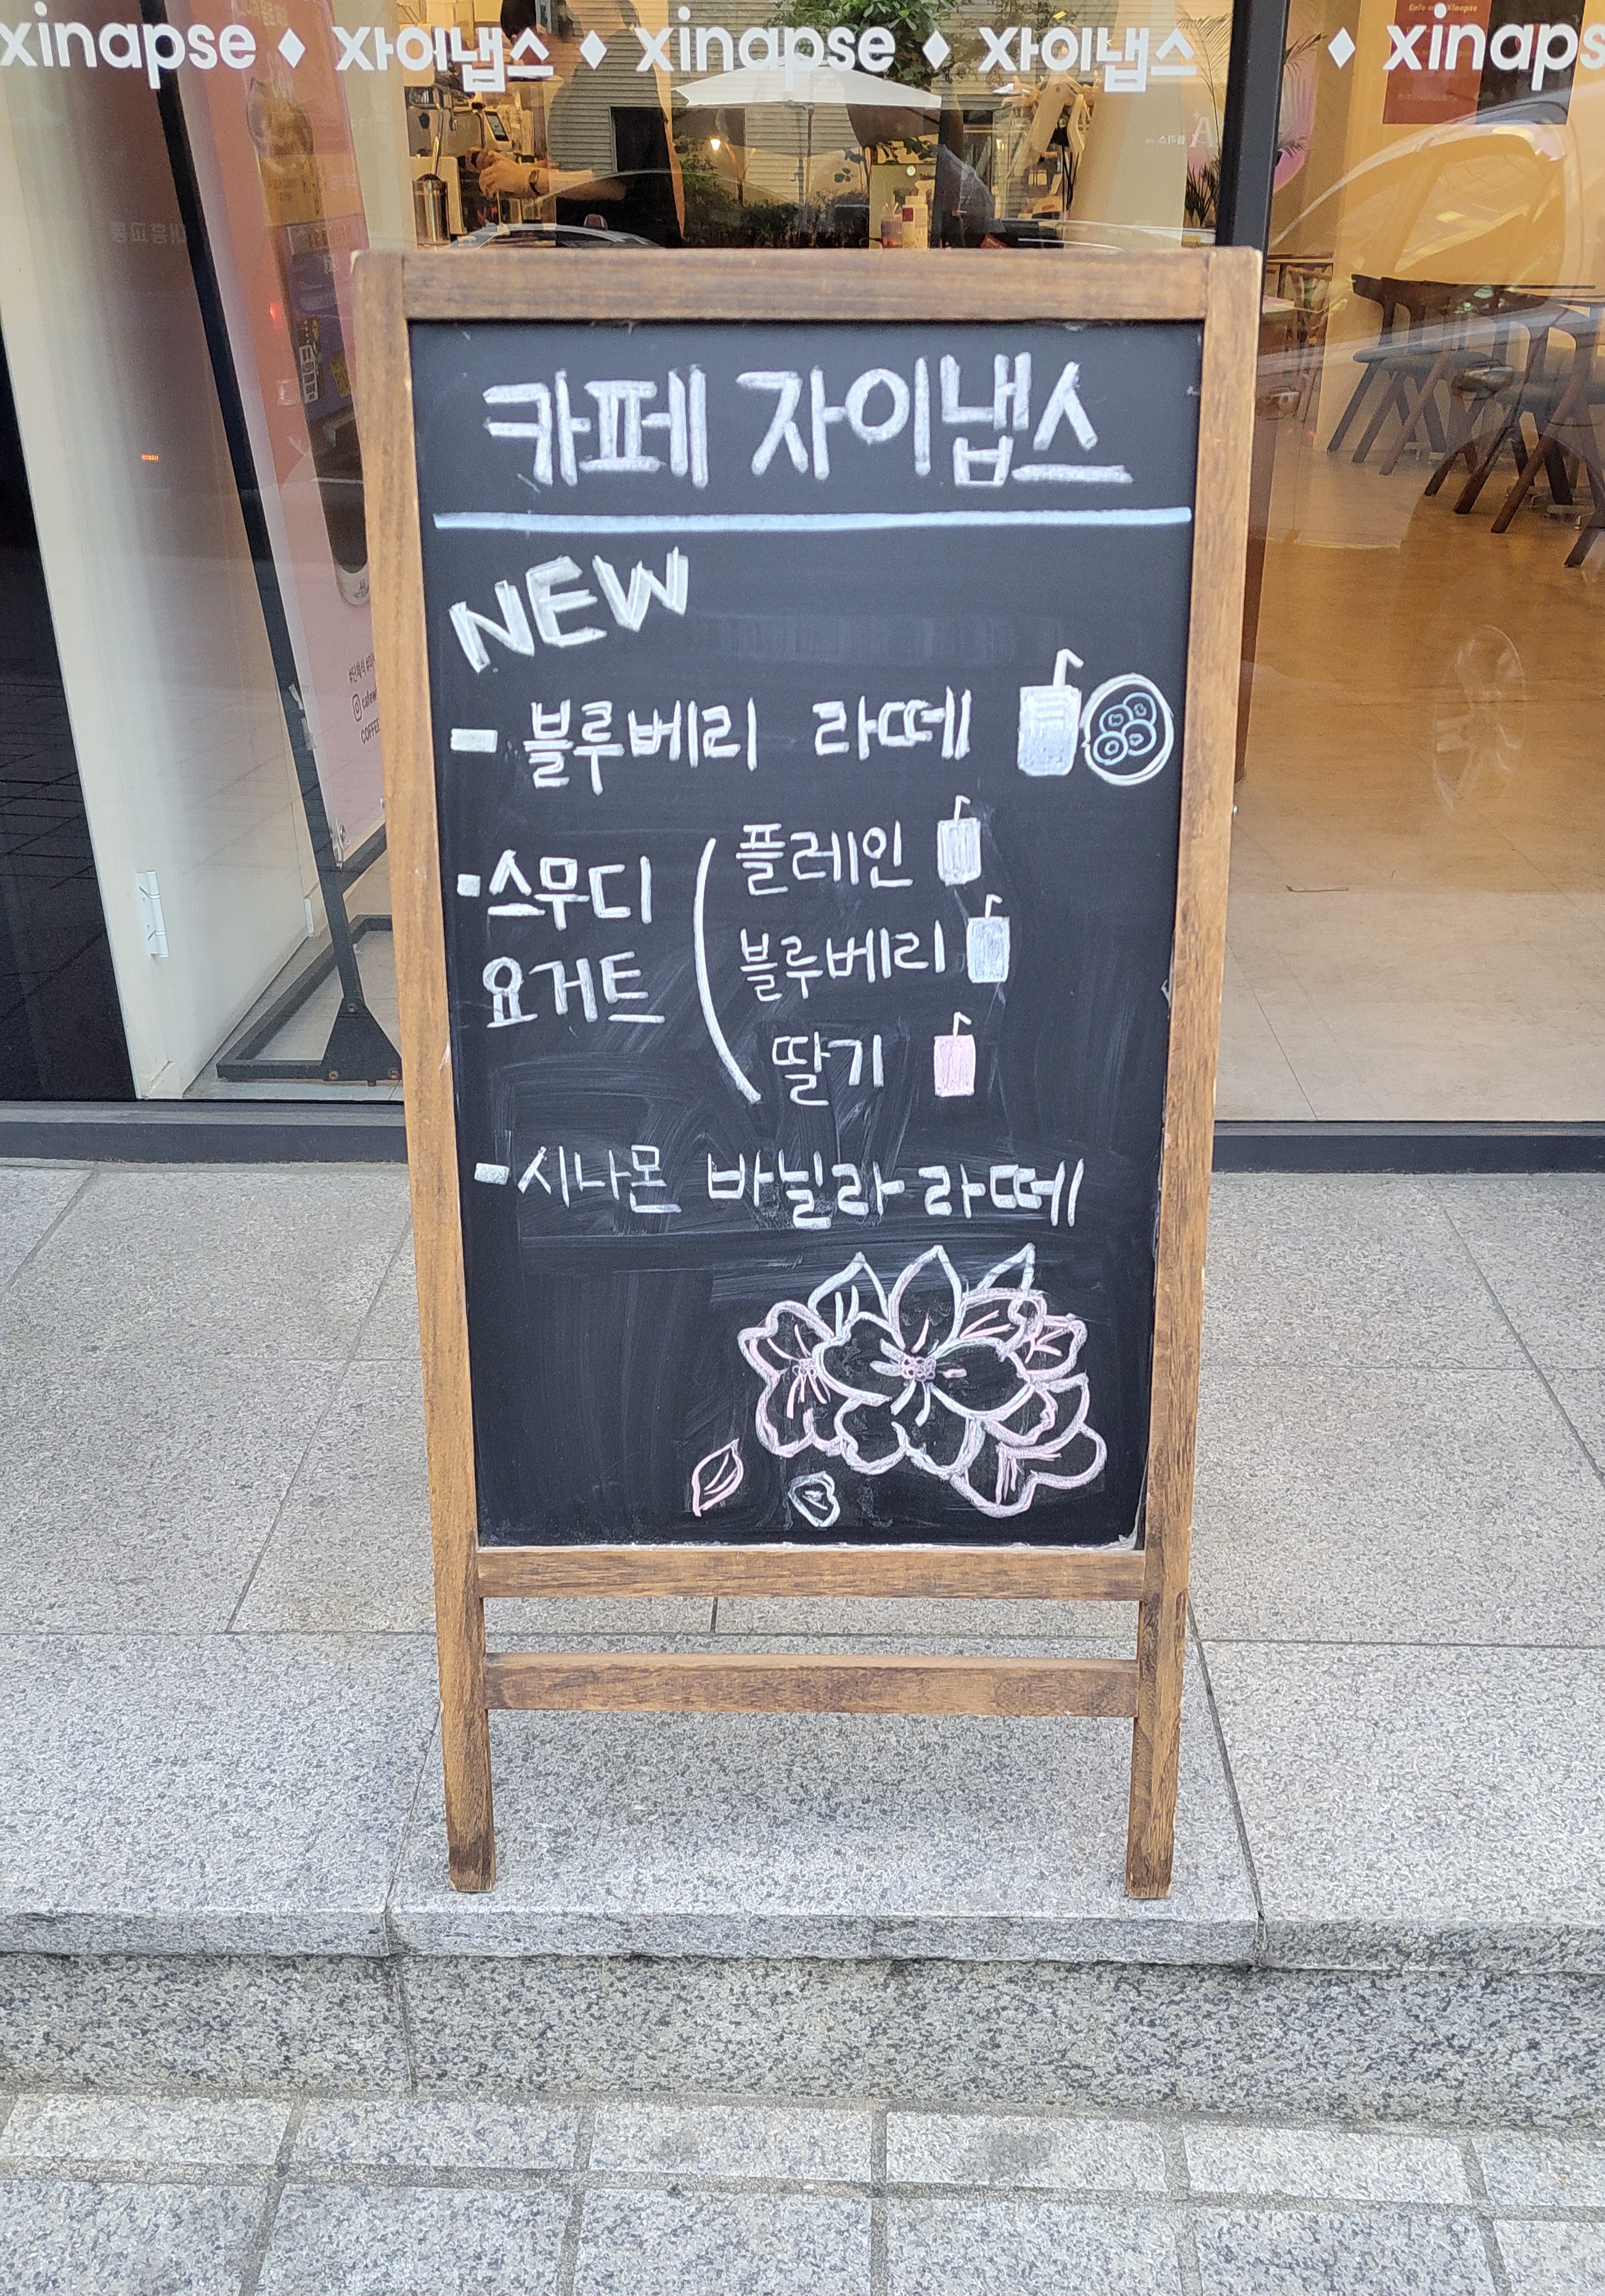 xinapse ♦ 자이냅스 ♦ xinapse ♦ 자이냅스 ♦ xinaps
카페 자이냅스
NEW
- 블루베리 라떼
- 스무디
요거트
플레인
블루베리
딸기
- 시나몬 바닐라 라떼
COFFEE